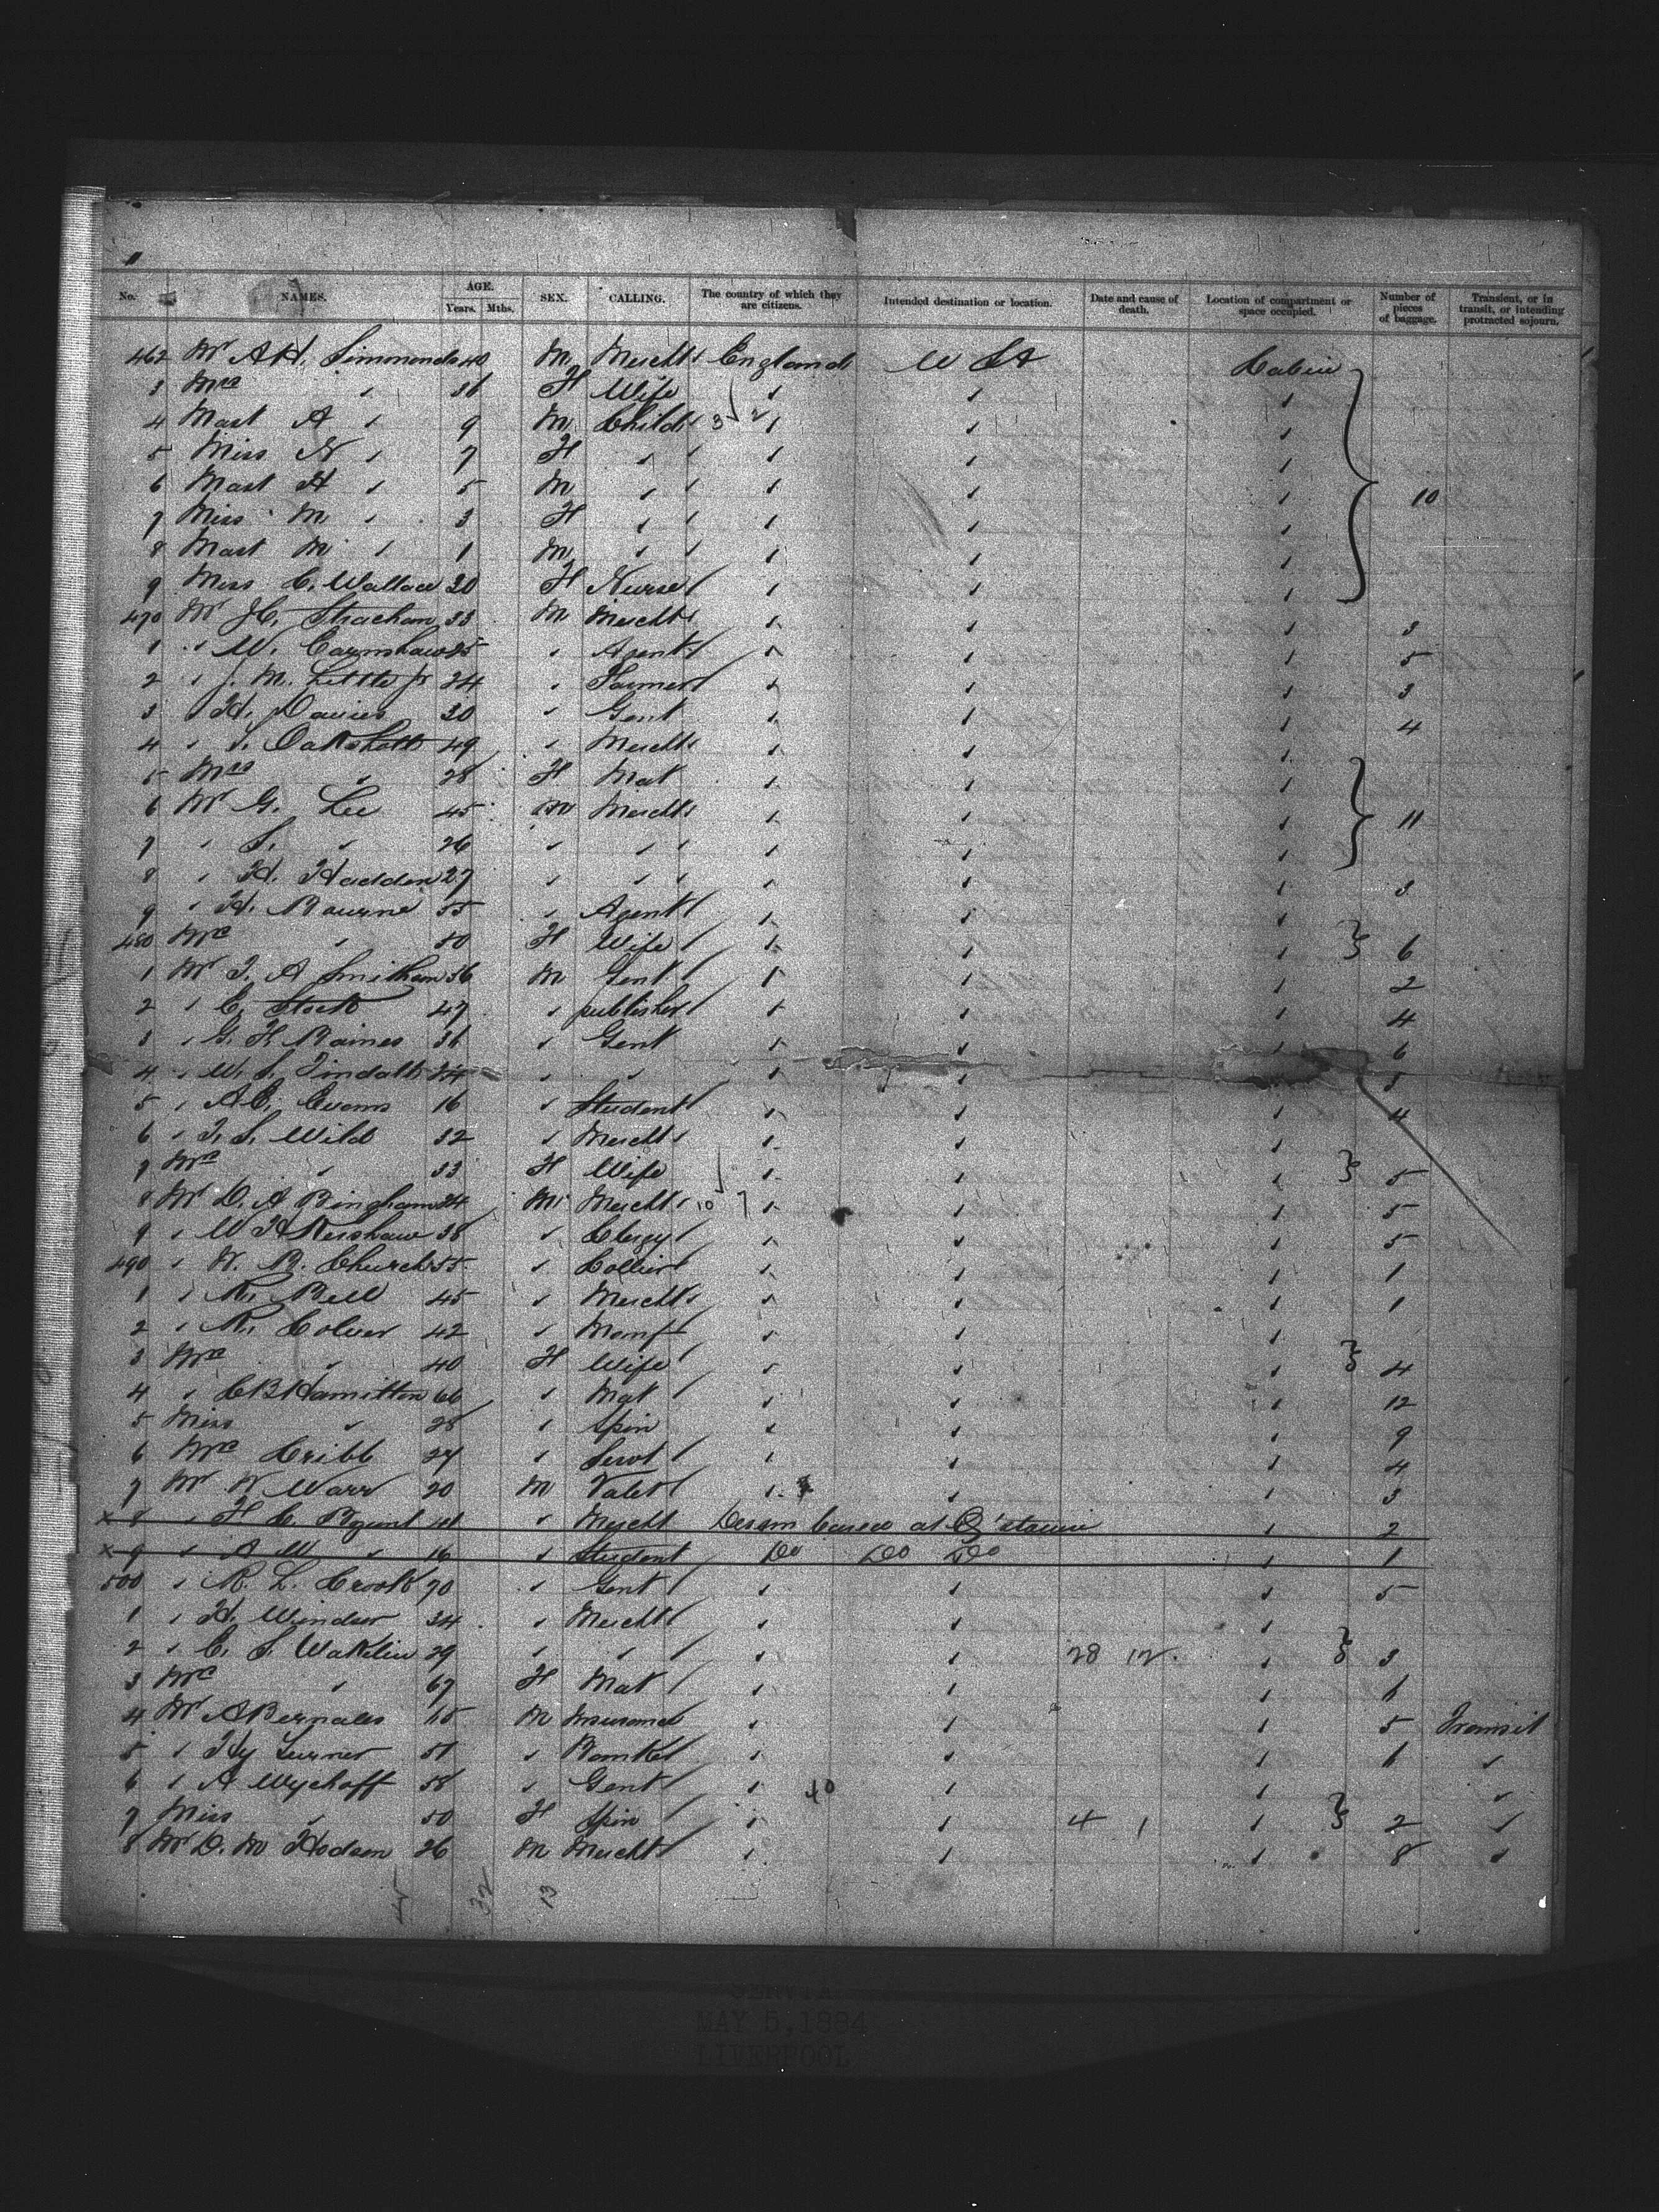 No. NAMES. AGE. Years. Mths. SEX. CALLING. The country of which they are citizens. Intended destination or location. Date and cause of death. Location of compartment or space occupied. Number of pieces of baggage. Transient, or in transit, or intending protracted sojourn.
462 Mr A H. Simmonds 40 M Mercht England U St Cabin
3 Mrs " 36 F Wife " " "
4 Mast A " 9 M Child 3 2 " " "
5 Miss N " 7 F " " " "
6 Mast H " 5 M " " " " 10
7 Miss M " 3 F " " " "
8 Mast M " 1 M " " " "
9 Miss C. Wallace 20 F Nurse " " "
470 Mr J C. Strachan 33 M Mercht " " " 3
1 " W. Carnshaw 25 " Agent " " " 5
2 " J. M. Little Jr 24 " Farmer " " " 3
3 " H. Davies 30 " Gent " " " 4
4 " S. Oakshott 49 " Mercht " " "
5 Mrs " 28 F Mat " " "
6 Mr G. Lee 45 M Mercht " " " 11
7 " S. " 26 " " " " "
8 " H. Hadden 27 " " " " " 3
9 " H. Bourne 55 " Agent " " "
480 Mrs " 50 F Wife " " " 6
1 Mr T. A Smitham 36 M Gent " " " 2
2 " E. Stock 47 " publisher " " " 4
3 " G. H. Raines 36 " Gent " " " 6
4 " W. S. Tindall 24 " " " " " 5
5 " A C. Evans 16 " Student " " " 4
6 " T. S. Wild 32 " Mercht " " "
7 Mrs " 33 F Wife " " " 5
8 Mr D. A Bingham 24 M Mercht 10 7 " " " 5
9 " W H Kershaw 38 " Clergy " " " 5
490 " W. R. Church 55 " Collier " " " 1
1 " R. Bell 45 " Mercht " " " 1
2 " R. Colver 42 " Manf " " "
3 Mrs " 40 F Wife " " " 4
4 " C B Hamilton 66 " Mat " " " 12
5 Miss " 28 " Spin " " " 9
6 Mrs Cribb 27 " Servt " " " 4
7 Mr W Warr 20 M Valet " " " 3
x 8 " H C. " Mercht at Q'stown " 2
x 9 " A W " 16 " Student Do Do Do " 1
500 " R. L. Crook 70 " Gent " " " 5
1 " H. Windsor 34 " Mercht " " "
2 " C. S. Wakelin 29 " " " " 28 12 " 3
3 Mrs " 67 F Mat " " " 1
4 Mr A Bernales 65 M Insurance " " " 5 Transit
5 " Hy Turner 51 " Banker " " " 1 "
6 " A Wychoff 58 " Gent " 40 " " "
7 Miss " 50 F Spin " " 4 1 " 2 "
8 Mr D. M Hodson 26 M Mercht " " " 8 "
45 32 13
SERVIA
MAY 5, 1884
LIVERPOOL